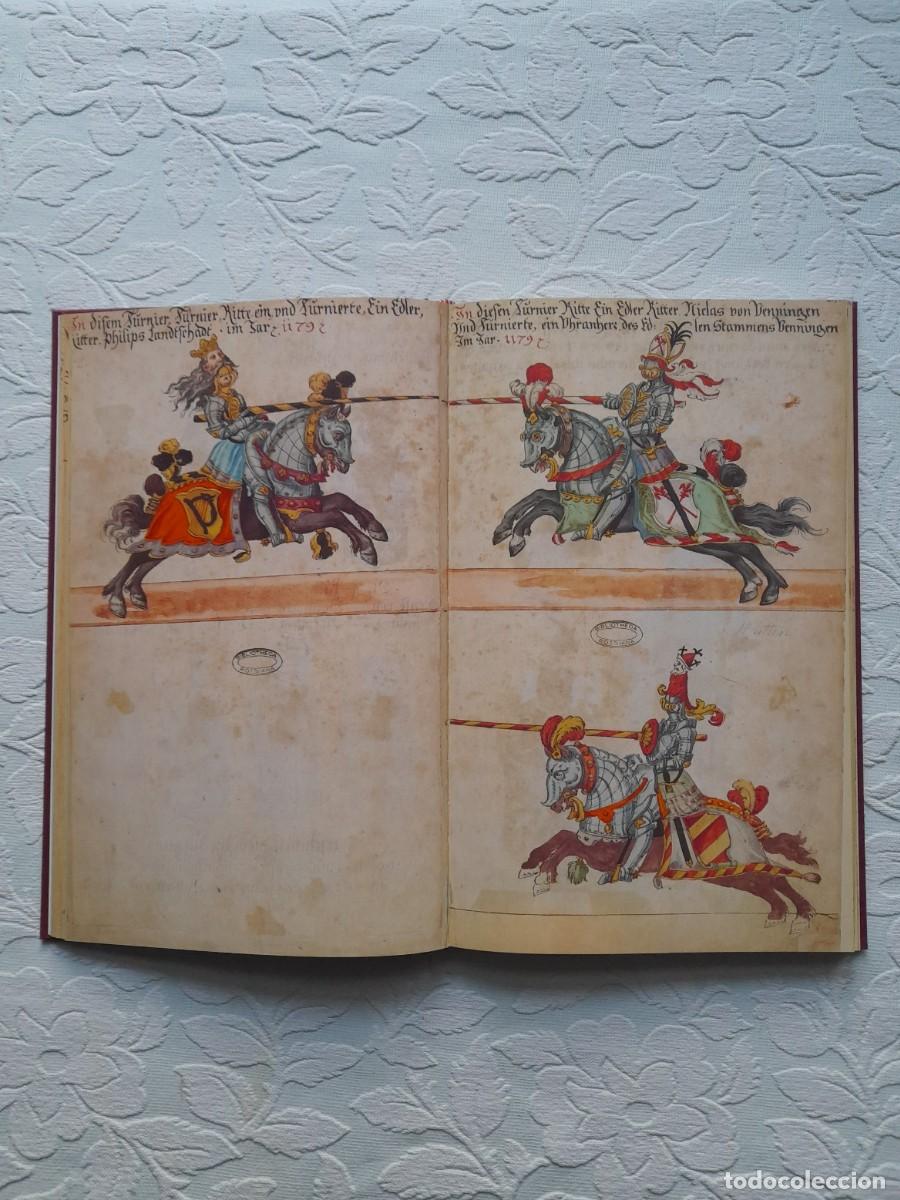 In disem Turnier, Turnier Ritte ein vnd Turnierte, Ein Edler,
ritter. Philips Landtschade. im Jar. 1179.
In diesen Turnier Ritte Ein Edler Ritter Niclas von Venningen
Vnd Turnierte, ein Vhranherr des Ed: len Stammens Venningen
Im Jar. 1179.
BIBLIOTHECA
ROSSIANA
BIBLIOTHECA
ROSSIANA
todocoleccion